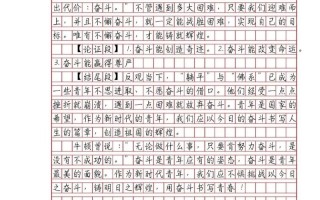 出代价：奋斗。"不管遇到多大困难，只要我们迎难而
上，并且不懈奋斗，就一定能战胜困难，实现自己的目
标。唯有不懈奋斗，才能铸就辉煌。
【论证段】1.奋斗能创造奇迹。2.奋斗能改变命运。
3.奋斗能赢得尊严
【结尾段】反观当下，"躺平"与"佛系"已成为
一些青年不思进取、不愿奋斗的借口。他们经受一点点
挫折就崩溃，遇到一点困难就放弃奋斗。青年是国家的
希望，作为新时代的青年，我们应以今日之奋斗书写人
生的篇章，创造祖国的辉煌。
牛顿曾说："无论做什么事，只要肯努力奋斗，是
没有不成功的。"奋斗是青年应有的姿态，奋斗是青年
最美的面貌。作为新时代青年，我们应不惧挑战以今日
之奋斗，铸明日之辉煌，用奋斗书写青春！